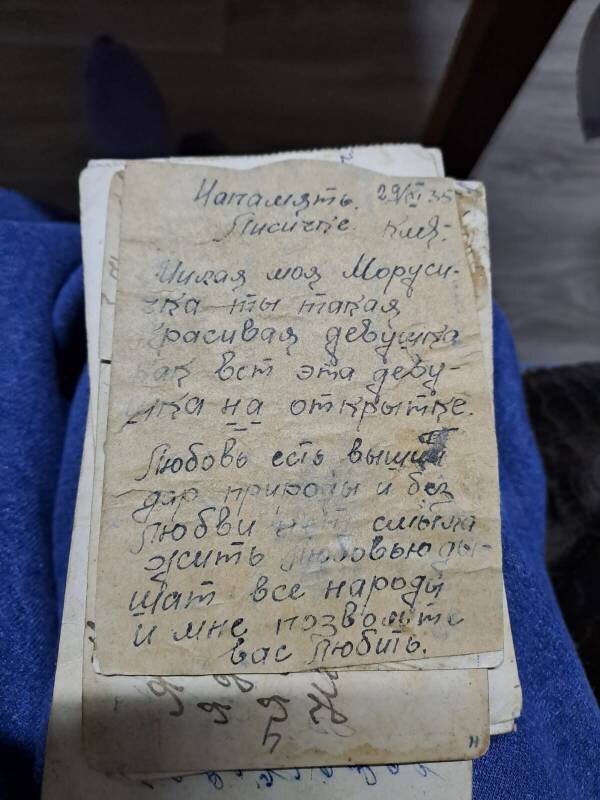 Напамять. 29/XI 35
Писичке кмя.
Милая моя Моруси-
чка ты такая
красивая девушка
как вст эта деву-
шка на открытке.
Любовь есть вышш
дар природы и без
Любви нет смысла
жить любовью ды-
шат все народы
и мне позвольте
вас Любить.